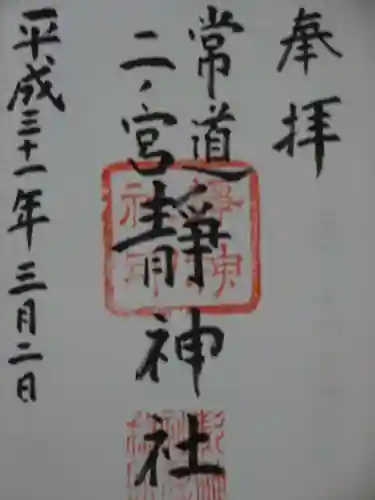 奉拝
常道
二ノ宮
靜神社
平成三十一年三月二日